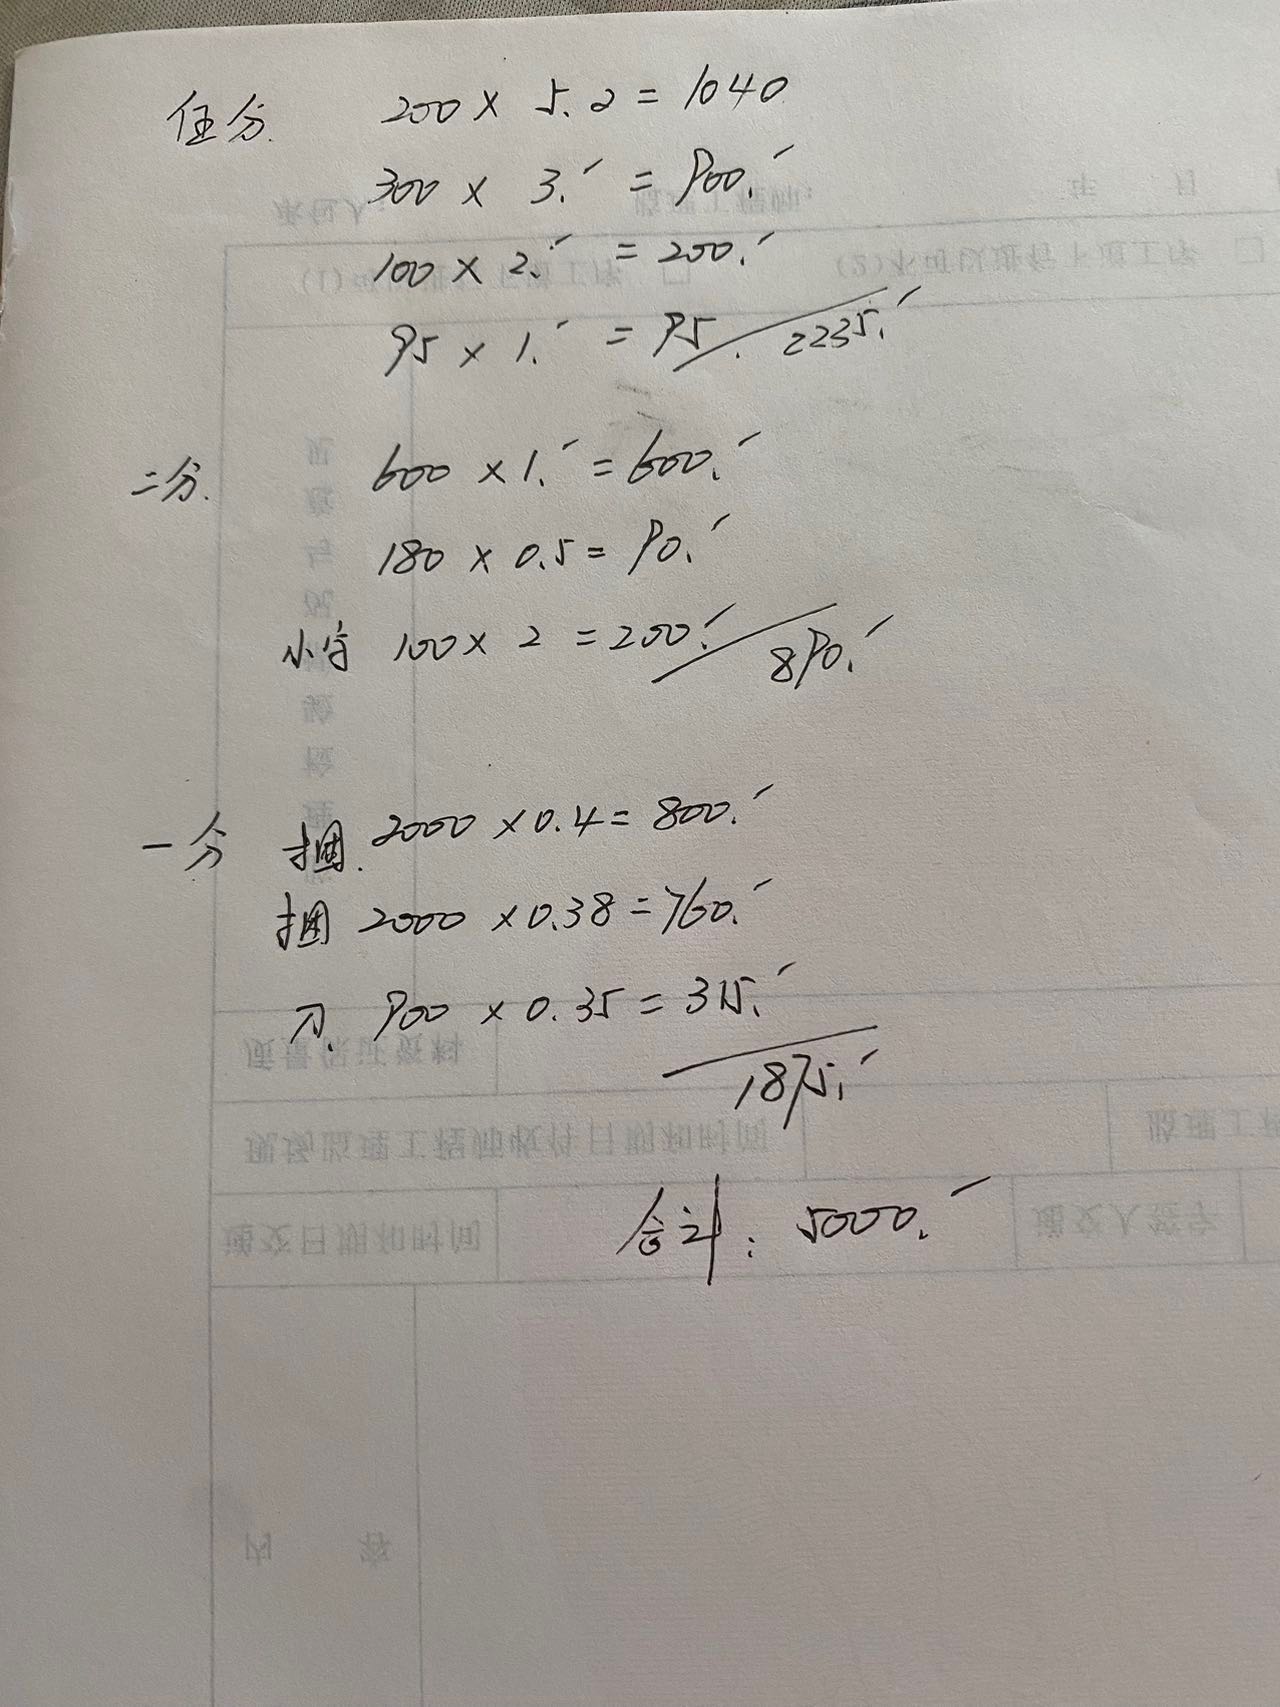 伍分. 200 × 5.2 = 1040
300 × 3.- = 900.-
100 × 2.- = 200.-
95 × 1.- = 95. 2235.-
二分. 600 × 1.- = 600.-
180 × 0.5 = 90.-
小字 100 × 2 = 200.- 890.-
一分 捆. 2000 × 0.4 = 800.-
捆 2000 × 0.38 = 760.-
刀. 900 × 0.35 = 315.-
1875.-
合计: 5000.-